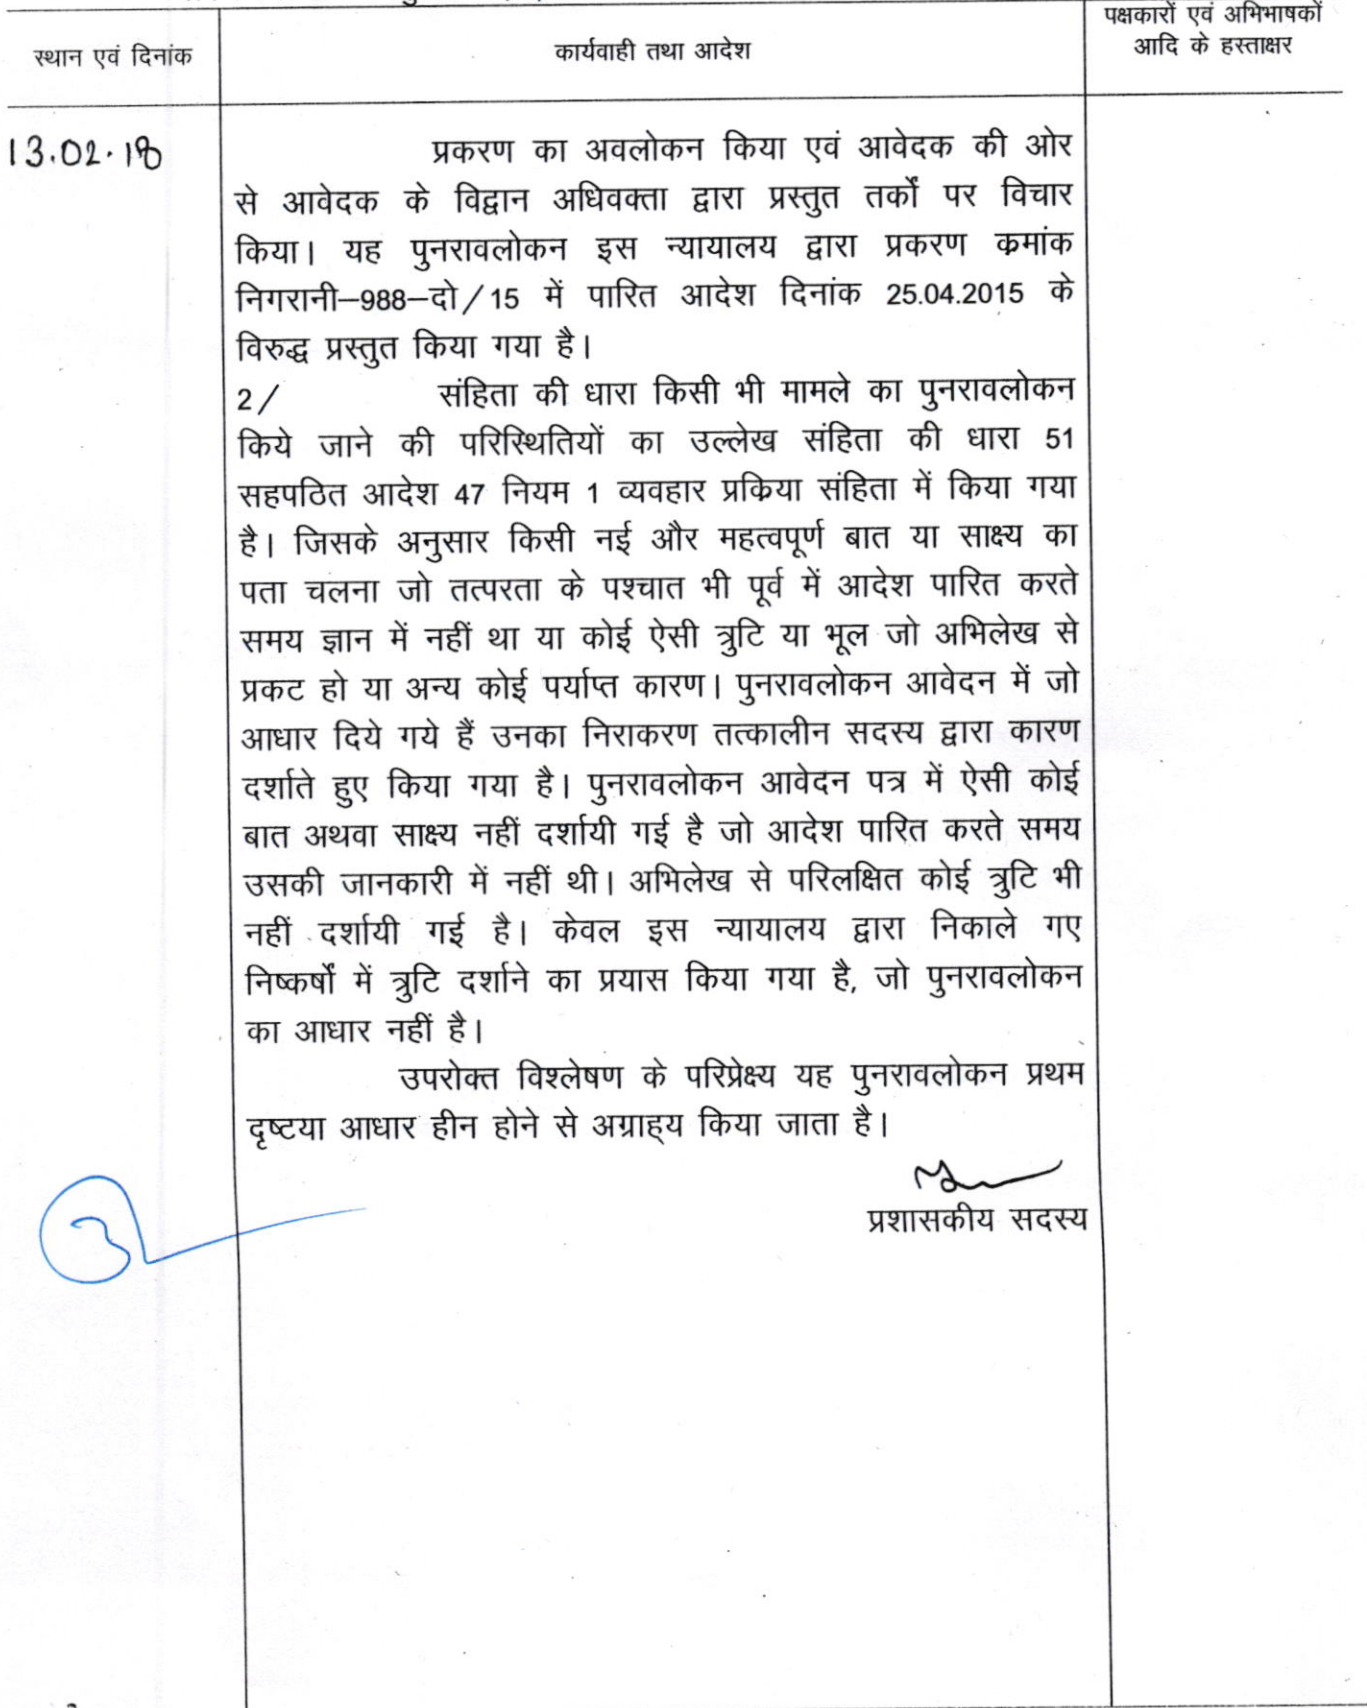 स्थान एवं दिनांक
कार्यवाही तथा आदेश
पक्षकारों एवं अभिभाषकों
आदि के हस्ताक्षर
13.02.18
प्रकरण का अवलोकन किया एवं आवेदक की ओर
से आवेदक के विद्वान अधिवक्ता द्वारा प्रस्तुत तर्को पर विचार
किया। यह पुनरावलोकन इस न्यायालय द्वारा प्रकरण कमांक
निगरानी–988–दो/15 में पारित आदेश दिनांक 25.04.2015 के
विरुद्ध प्रस्तुत किया गया है।
2/ संहिता की धारा किसी भी मामले का पुनरावलोकन
किये जाने की परिस्थितियों का उल्लेख संहिता की धारा 51
सहपठित आदेश 47 नियम 1 व्यवहार प्रकिया संहिता में किया गया
है। जिसके अनुसार किसी नई और महत्वपूर्ण बात या साक्ष्य का
पता चलना जो तत्परता के पश्चात भी पूर्व में आदेश पारित करते
समय ज्ञान में नहीं था या कोई ऐसी त्रुटि या भूल जो अभिलेख से
प्रकट हो या अन्य कोई पर्याप्त कारण। पुनरावलोकन आवेदन में जो
आधार दिये गये हैं उनका निराकरण तत्कालीन सदस्य द्वारा कारण
दर्शाते हुए किया गया है। पुनरावलोकन आवेदन पत्र में ऐसी कोई
बात अथवा साक्ष्य नहीं दर्शायी गई है जो आदेश पारित करते समय
उसकी जानकारी में नहीं थी। अभिलेख से परिलक्षित कोई त्रुटि भी
नहीं दर्शायी गई है। केवल इस न्यायालय द्वारा निकाले गए
निष्कर्षों में त्रुटि दर्शाने का प्रयास किया गया है, जो पुनरावलोकन
का आधार नहीं है।
उपरोक्त विश्लेषण के परिप्रेक्ष्य यह पुनरावलोकन प्रथम
दृष्टया आधार हीन होने से अग्राह्य किया जाता है।
प्रशासकीय सदस्य